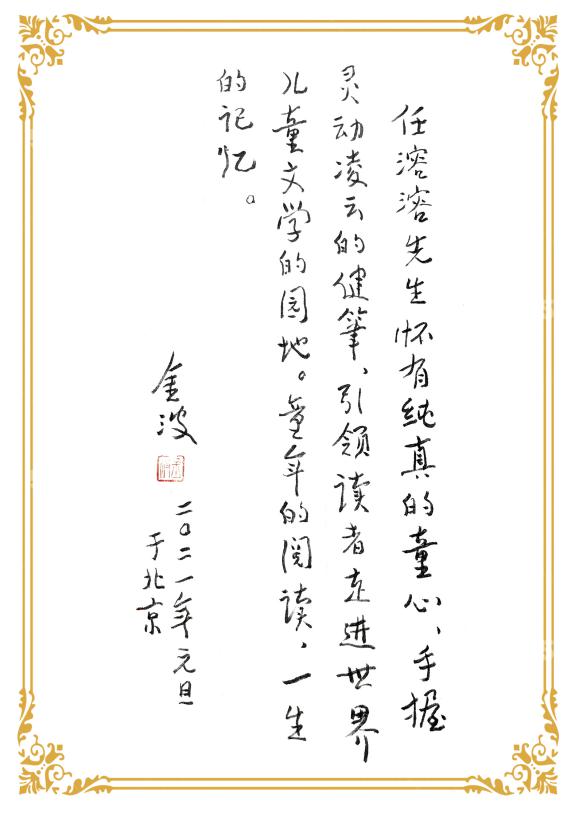 任溶溶先生怀有纯真的童心、手握
灵动凌云的健筆、引领读者走进世界
儿童文学的园地。童年的阅读，一生
的记忆。
金波
二〇二一年元旦
于北京